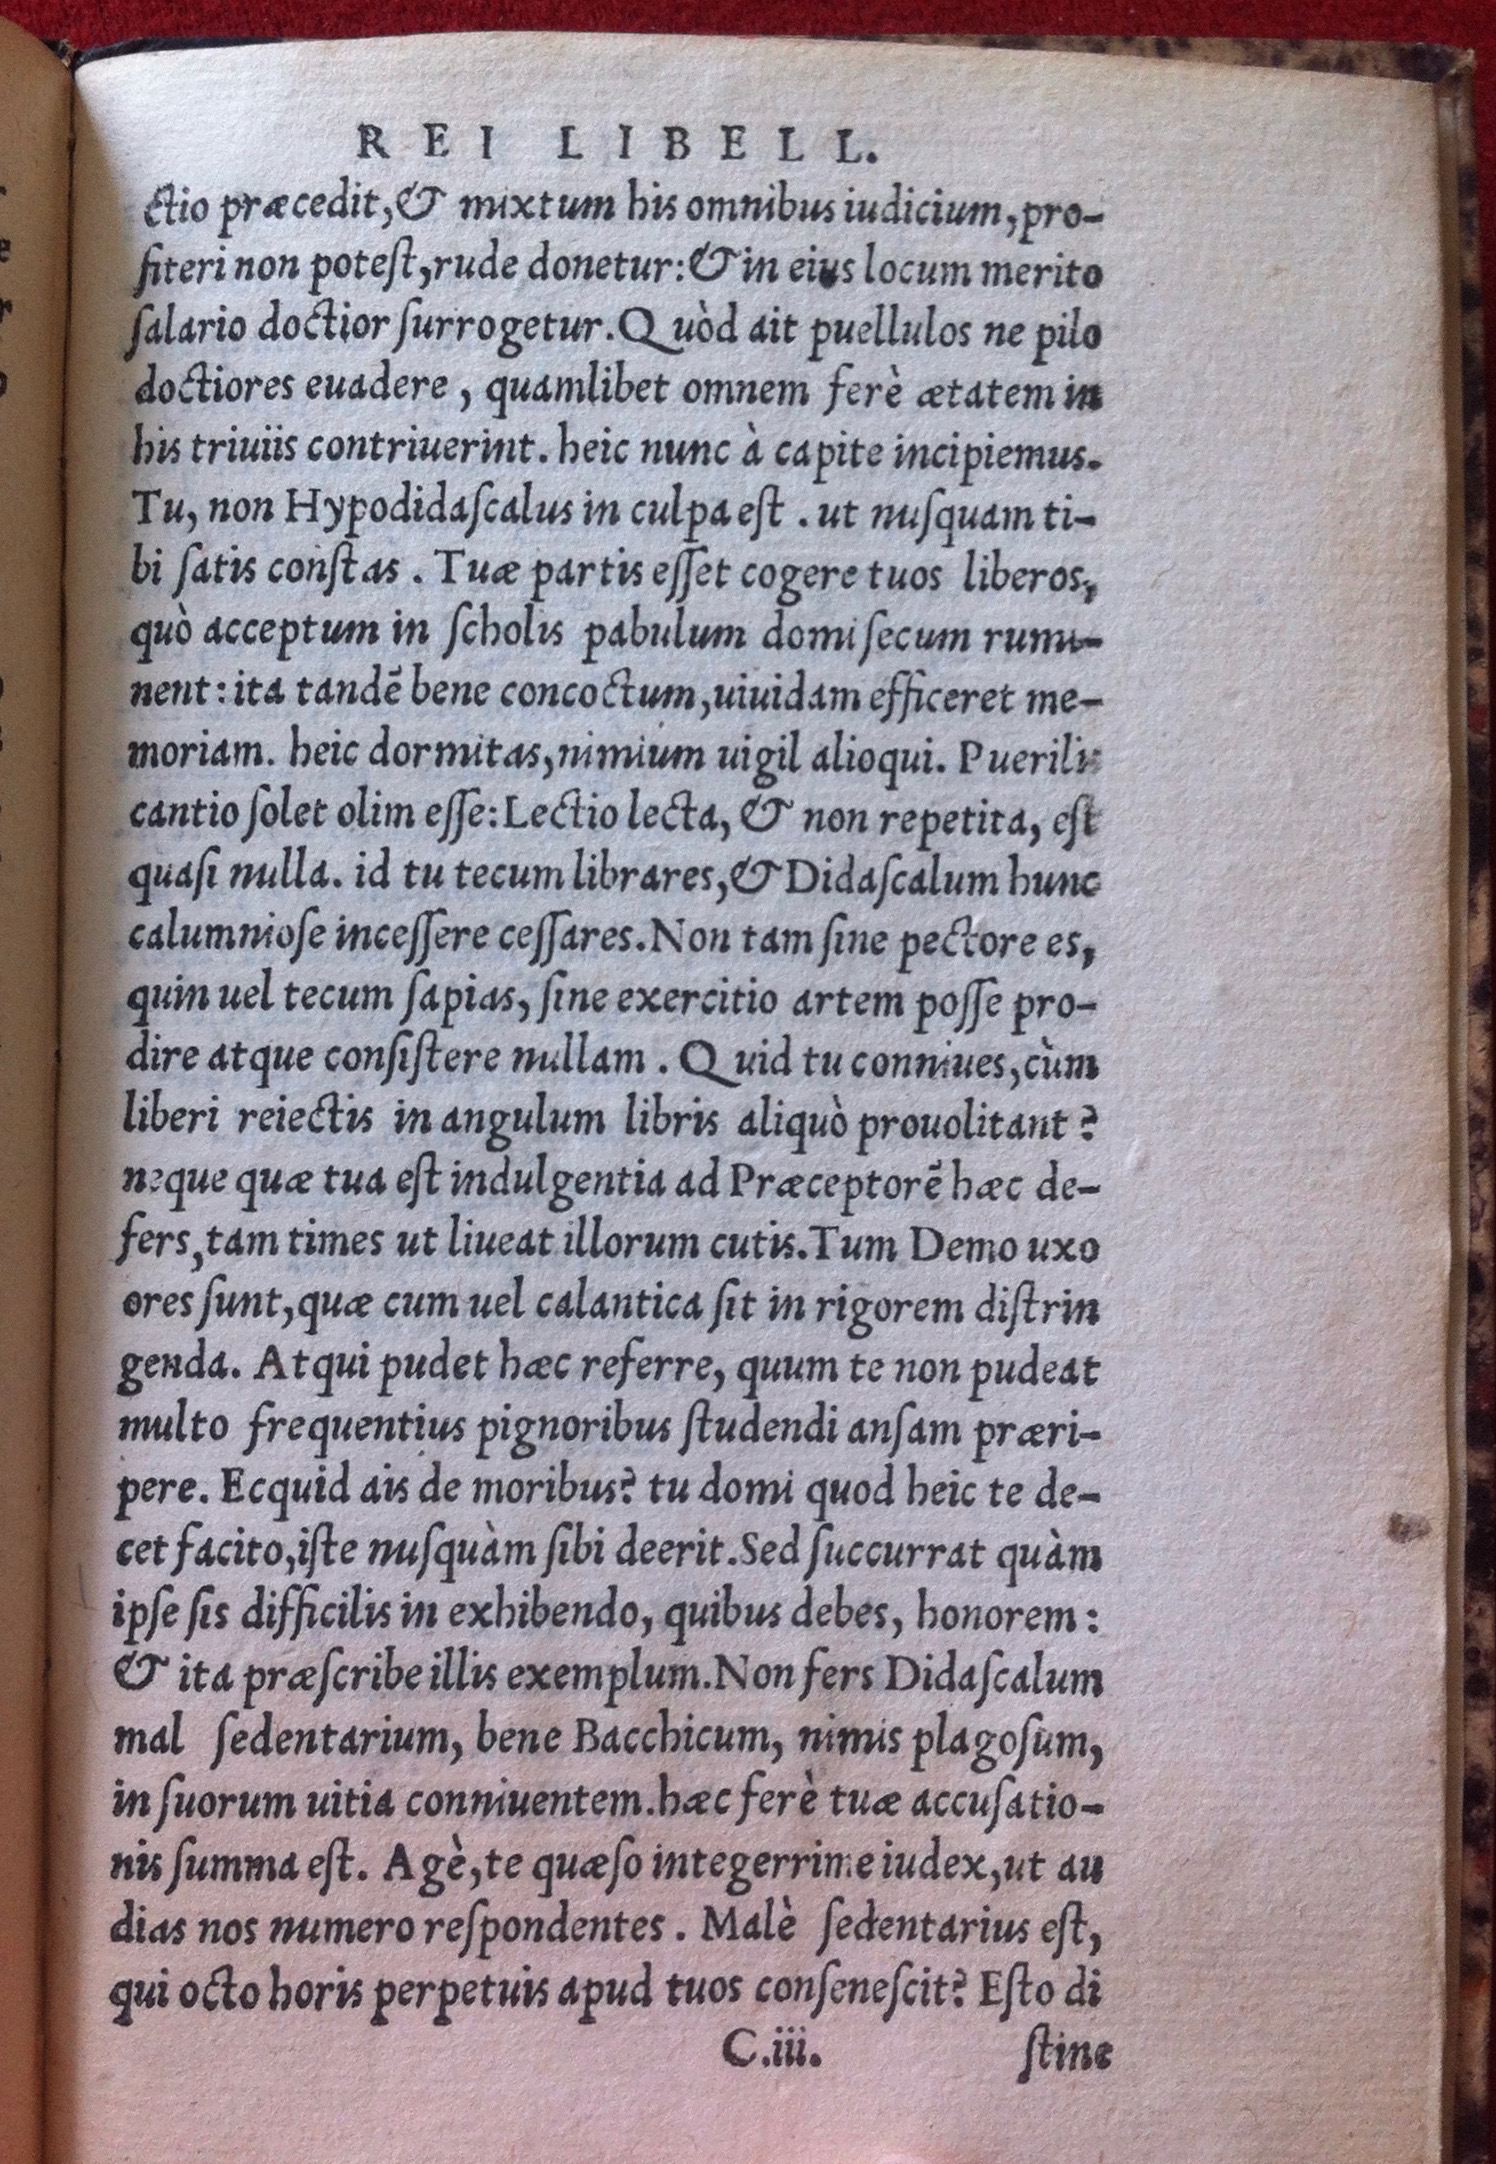 REI LIBELL.
ctio præcedit, & mixtum his omnibus iudicium, pro-
fiteri non potest, rude donetur: & in eius locum merito
salario doctior surrogetur. Quòd ait puellulos ne pilo
doctiores euadere, quamlibet omnem ferè ætatem in
his triuiis contriuerint. heic nunc à capite incipiemus.
Tu, non Hypodidascalus in culpa est. ut nusquam ti-
bi satis constas. Tuæ partis esset cogere tuos liberos,
quò acceptum in scholis pabulum domi secum rumi-
nent: ita tandē bene concoctum, uiuidam efficeret me-
moriam. heic dormitas, nimium uigil alioqui. Puerilis
cantio solet olim esse: Lectio lecta, & non repetita, est
quasi nulla. id tu tecum librares, & Didascalum hunc
calumniose incessere cessares. Non tam sine pectore es,
quin uel tecum sapias, sine exercitio artem posse pro-
dire atque consistere nullam. Quid tu conniues, cùm
liberi reiectis in angulum libris aliquò prouolitant?
neque quæ tua est indulgentia ad Præceptorē hæc de-
fers, tam times ut liueat illorum cutis. Tum Demo uxo
ores sunt, quæ cum uel calantica sit in rigorem distrin
genda. Atqui pudet hæc referre, quum te non pudeat
multo frequentius pignoribus studendi ansam præri-
pere. Ecquid ais de moribus? tu domi quod heic te de-
cet facito, iste nusquàm sibi deerit. Sed succurrat quàm
ipse sis difficilis in exhibendo, quibus debes, honorem:
& ita præscribe illis exemplum. Non fers Didascalum
mal sedentarium, bene Bacchicum, nimis plagosum,
in suorum uitia conniuentem. hæc ferè tuæ accusatio-
nis summa est. Agè, te quæso integerrime iudex, ut au
dias nos numero respondentes. Malè sedentarius est,
qui octo horis perpetuis apud tuos consenescit? Esto di
C.iii. stine